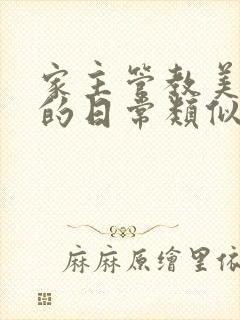 家主管教美
的日常類似
麻麻原繪里依